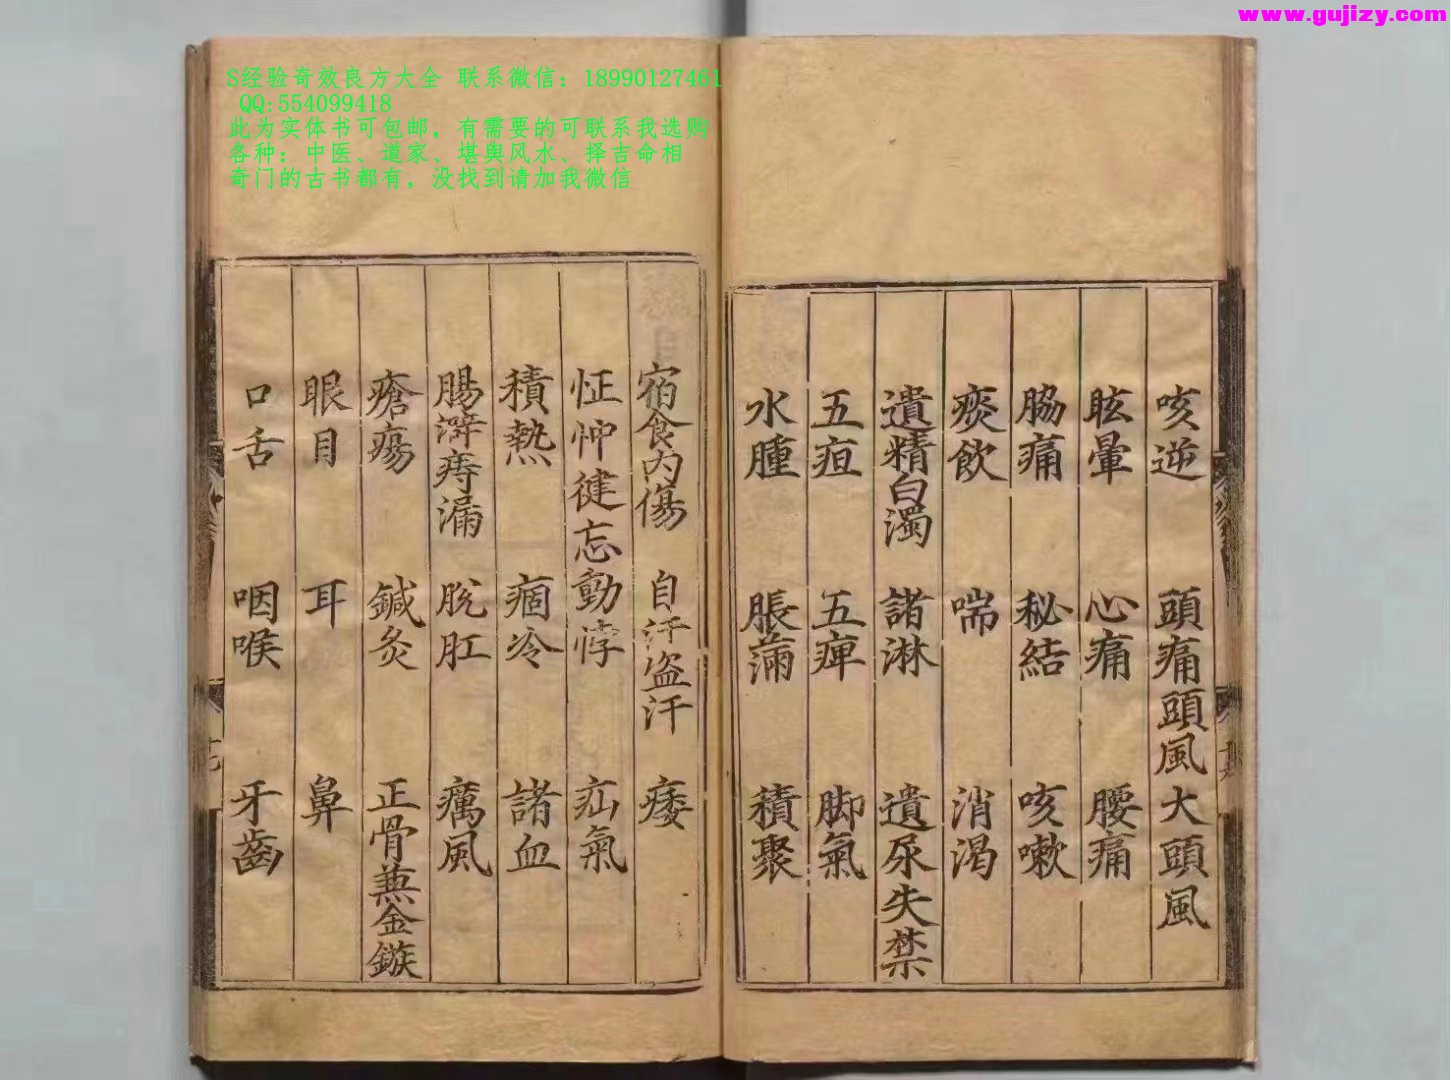 www.gujizy.com
S经验奇效良方大全 联系微信：18990127461
QQ:554099418
此为实体书可包邮，有需要的可联系我选购
各种：中医、道家、堪舆风水、择吉命相
奇门的古书都有，没找到请加我微信
咳逆 頭痛頭風大頭風
眩暈 心痛 腰痛
脇痛 秘結 咳嗽
痰飲 喘 消渴
遺精白濁 諸淋 遺尿失禁
五疸 五痺 脚氣
水腫 脹滿 積聚
宿食内傷 自汗盗汗 痿
怔忡健忘動悸 疝氣
積熱 痼冷 諸血
腸澼痔漏 脫肛 癘風
瘡瘍 鍼灸 正骨兼金鏃
眼目 耳 鼻
口舌 咽喉 牙齒